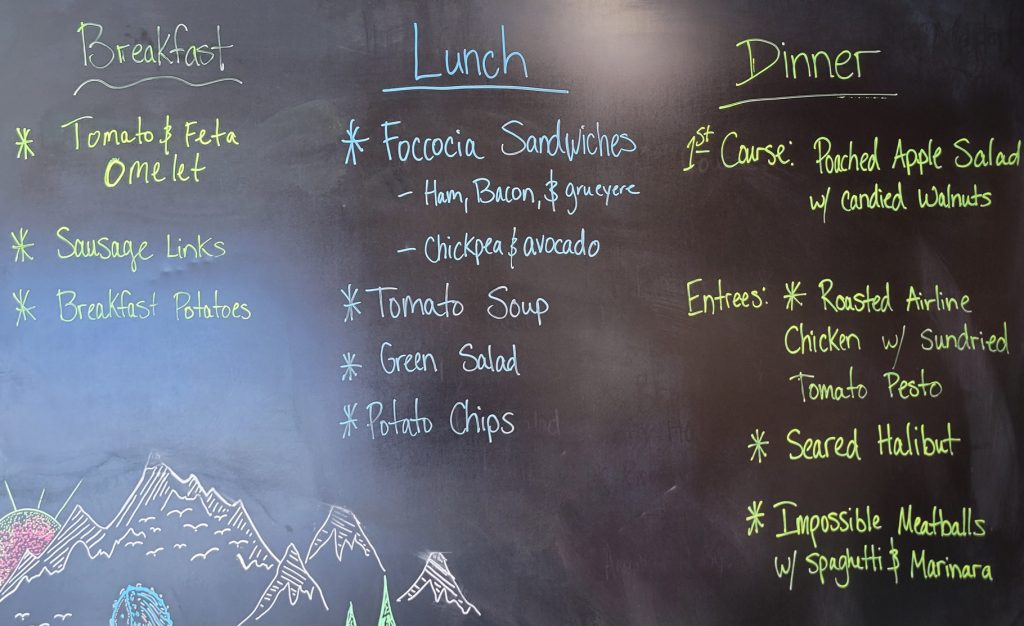 Breakfast
* Tomato & Feta
Ome'let
* Sausage Links
* Breakfast Potatoes
Lunch
* Foccocia Sandwiches
- Ham, Bacon, & grueyere
- Chickpea & avocado
* Tomato Soup
* Green Salad
* Potato Chips
Dinner
1st Course: Poached Apple Salad
w/ candied Walnuts
Entrees: * Roasted Airline
Chicken w/ Sundried
Tomato Pesto
* Seared Halibut
* Impossible Meatballs
w/ Spaghetti & Marinara